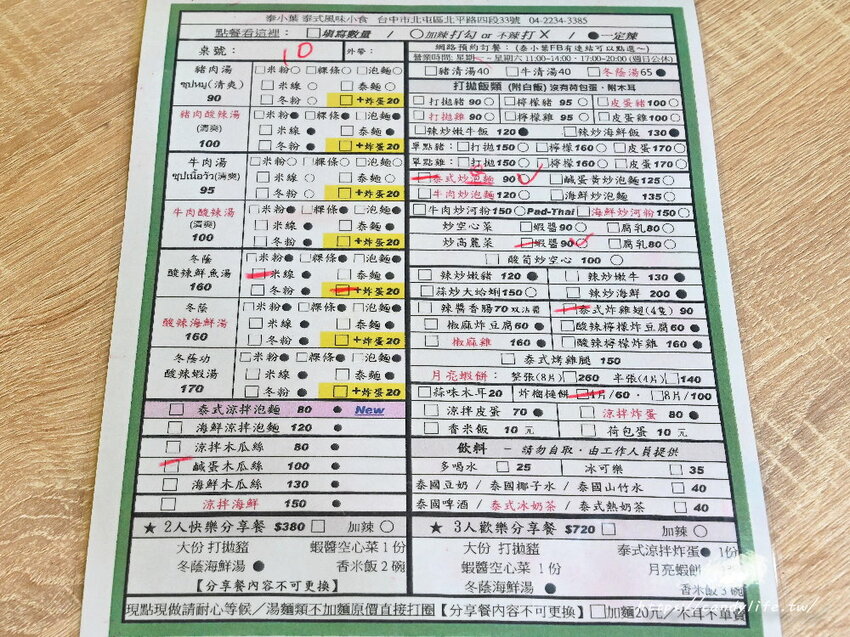 泰小葉 泰式風味小食 台中市北屯區北平路四段33號 04-2234-3385
點餐看這裡: □填寫數量 / ○加辣打勾 or 不辣打X / ●一定辣
桌號: 10 外帶:
豬肉湯 □米粉○ □粿條○ □泡麵○
ซุปหมู(清爽) □米線○ □泰麵○
90 □冬粉○ □+炸蛋20
豬肉酸辣湯 □米粉● □粿條● □泡麵●
(濃爽) □米線● □泰麵●
100 □冬粉● □+炸蛋20
牛肉湯 □米粉○ □粿條○ □泡麵○
ซุปเนื้อวัว(清爽) □米線○ □泰麵○
95 □冬粉○ □+炸蛋20
牛肉酸辣湯 □米粉● □粿條● □泡麵●
(濃爽) □米線● □泰麵●
100 □冬粉● □+炸蛋20
冬蔭 □米粉● □粿條● □泡麵●
酸辣鮮魚湯 □米線● □泰麵●
160 □冬粉● □+炸蛋20
冬蔭 □米粉● □粿條● □泡麵●
酸辣海鮮湯 □米線● □泰麵●
160 □冬粉● □+炸蛋20
冬蔭功 □米粉● □粿條● □泡麵●
酸辣蝦湯 □米線● □泰麵●
170 □冬粉● □+炸蛋20
□ 泰式涼拌泡麵 80 ● New
□ 海鮮涼拌泡麵 120 ●
□ 涼拌木瓜絲 80 ●
□ 鹹蛋木瓜絲 100 ●
□ 海鮮木瓜絲 130 ●
□ 涼拌海鮮 150 ●
網路預約訂餐: (泰小葉FB有連結可以點選~)
營業時間: 星期一~星期六 11:00~14:00、17:00~20:00 (週日公休)
□豬清湯40 □牛清湯40 □冬蔭湯65●
打拋飯類 (附白飯) 沒有荷包蛋、附木耳
□打拋豬 90○ □檸檬豬 95○ □皮蛋豬100○
□打拋雞 90○ □檸檬雞 95○ □皮蛋雞100○
□辣炒嫩牛飯 120● □辣炒海鮮飯 130●
單點豬:□打拋150○ □檸檬160○ □皮蛋170○
單點雞:□打拋150○ □檸檬160○ □皮蛋170○
□泰式炒泡麵 90○ □鹹蛋黃炒泡麵125○
□牛肉炒泡麵120○ □海鮮炒泡麵 135○
□牛肉炒河粉150○Pad-Thai□海鮮炒河粉150○
炒空心菜 □蝦醬90○ □腐乳80○
炒高麗菜 □蝦醬90○ □腐乳80○
□ 酸筍炒空心 100 ○
□ 辣炒嫩豬 120 ● □ 辣炒嫩牛 130 ●
□蒜炒大蛤蜊150○ □ 辣炒海鮮 200 ●
□ 辣醬香腸70 □泰式炸雞翅(4隻) 90
□ 椒麻炸豆腐60● □酸辣檸檬炸豆腐60●
□ 椒麻雞 160● □酸辣檸檬炸雞 160●
□ 泰式烤雞腿 150
月亮蝦餅: 整張(8片)□260 半張(4片)□140
□蒜味木耳20 炸榴槤餅 □4片/60、□8片/100
□ 涼拌皮蛋 70 ● □ 涼拌炸蛋 80 ●
□ 香米飯 10 元 □ 荷包蛋 10 元
飲料 - 請勿自取,由工作人員提供
多喝水 □ 25 冰可樂 □ 35
泰國豆奶 / 泰國椰子水 / 泰國山竹水 □ 40
泰國啤酒 / 泰式冰奶茶 / 泰式熱奶茶 □ 40
★ 2人快樂分享餐 $380 □ 加辣 ○
大份 打拋豬 蝦醬空心菜 1份
冬蔭海鮮湯● 香米飯 2 碗
【分享餐內容不可更換】
★ 3人歡樂分享餐 $720 □ 加辣 ○
大份 打拋豬 泰式涼拌炸蛋● 1份
蝦醬空心菜 1份 月亮蝦餅
冬蔭海鮮湯 ● 香米飯 3 碗
現點現做請耐心等候／湯麵類不加麵原價直接打圈【分享餐內容不可更換】□加麵20元／木耳不單賣